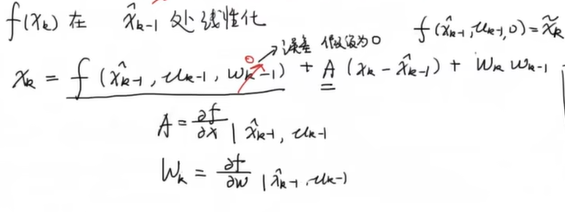 f(x_k) 在 x̂_{k-1} 处线性化
f(x̂_{k-1}, u_{k-1}, 0) = x̃_k
0 → 误差 假设为0
x_k = f(x̂_{k-1}, u_{k-1}, w_{k-1}) + A (x_k - x̂_{k-1}) + W_k w_{k-1}
A = ∂f/∂x | x̂_{k-1}, u_{k-1}
W_k = ∂f/∂w | x̂_{k-1}, u_{k-1}